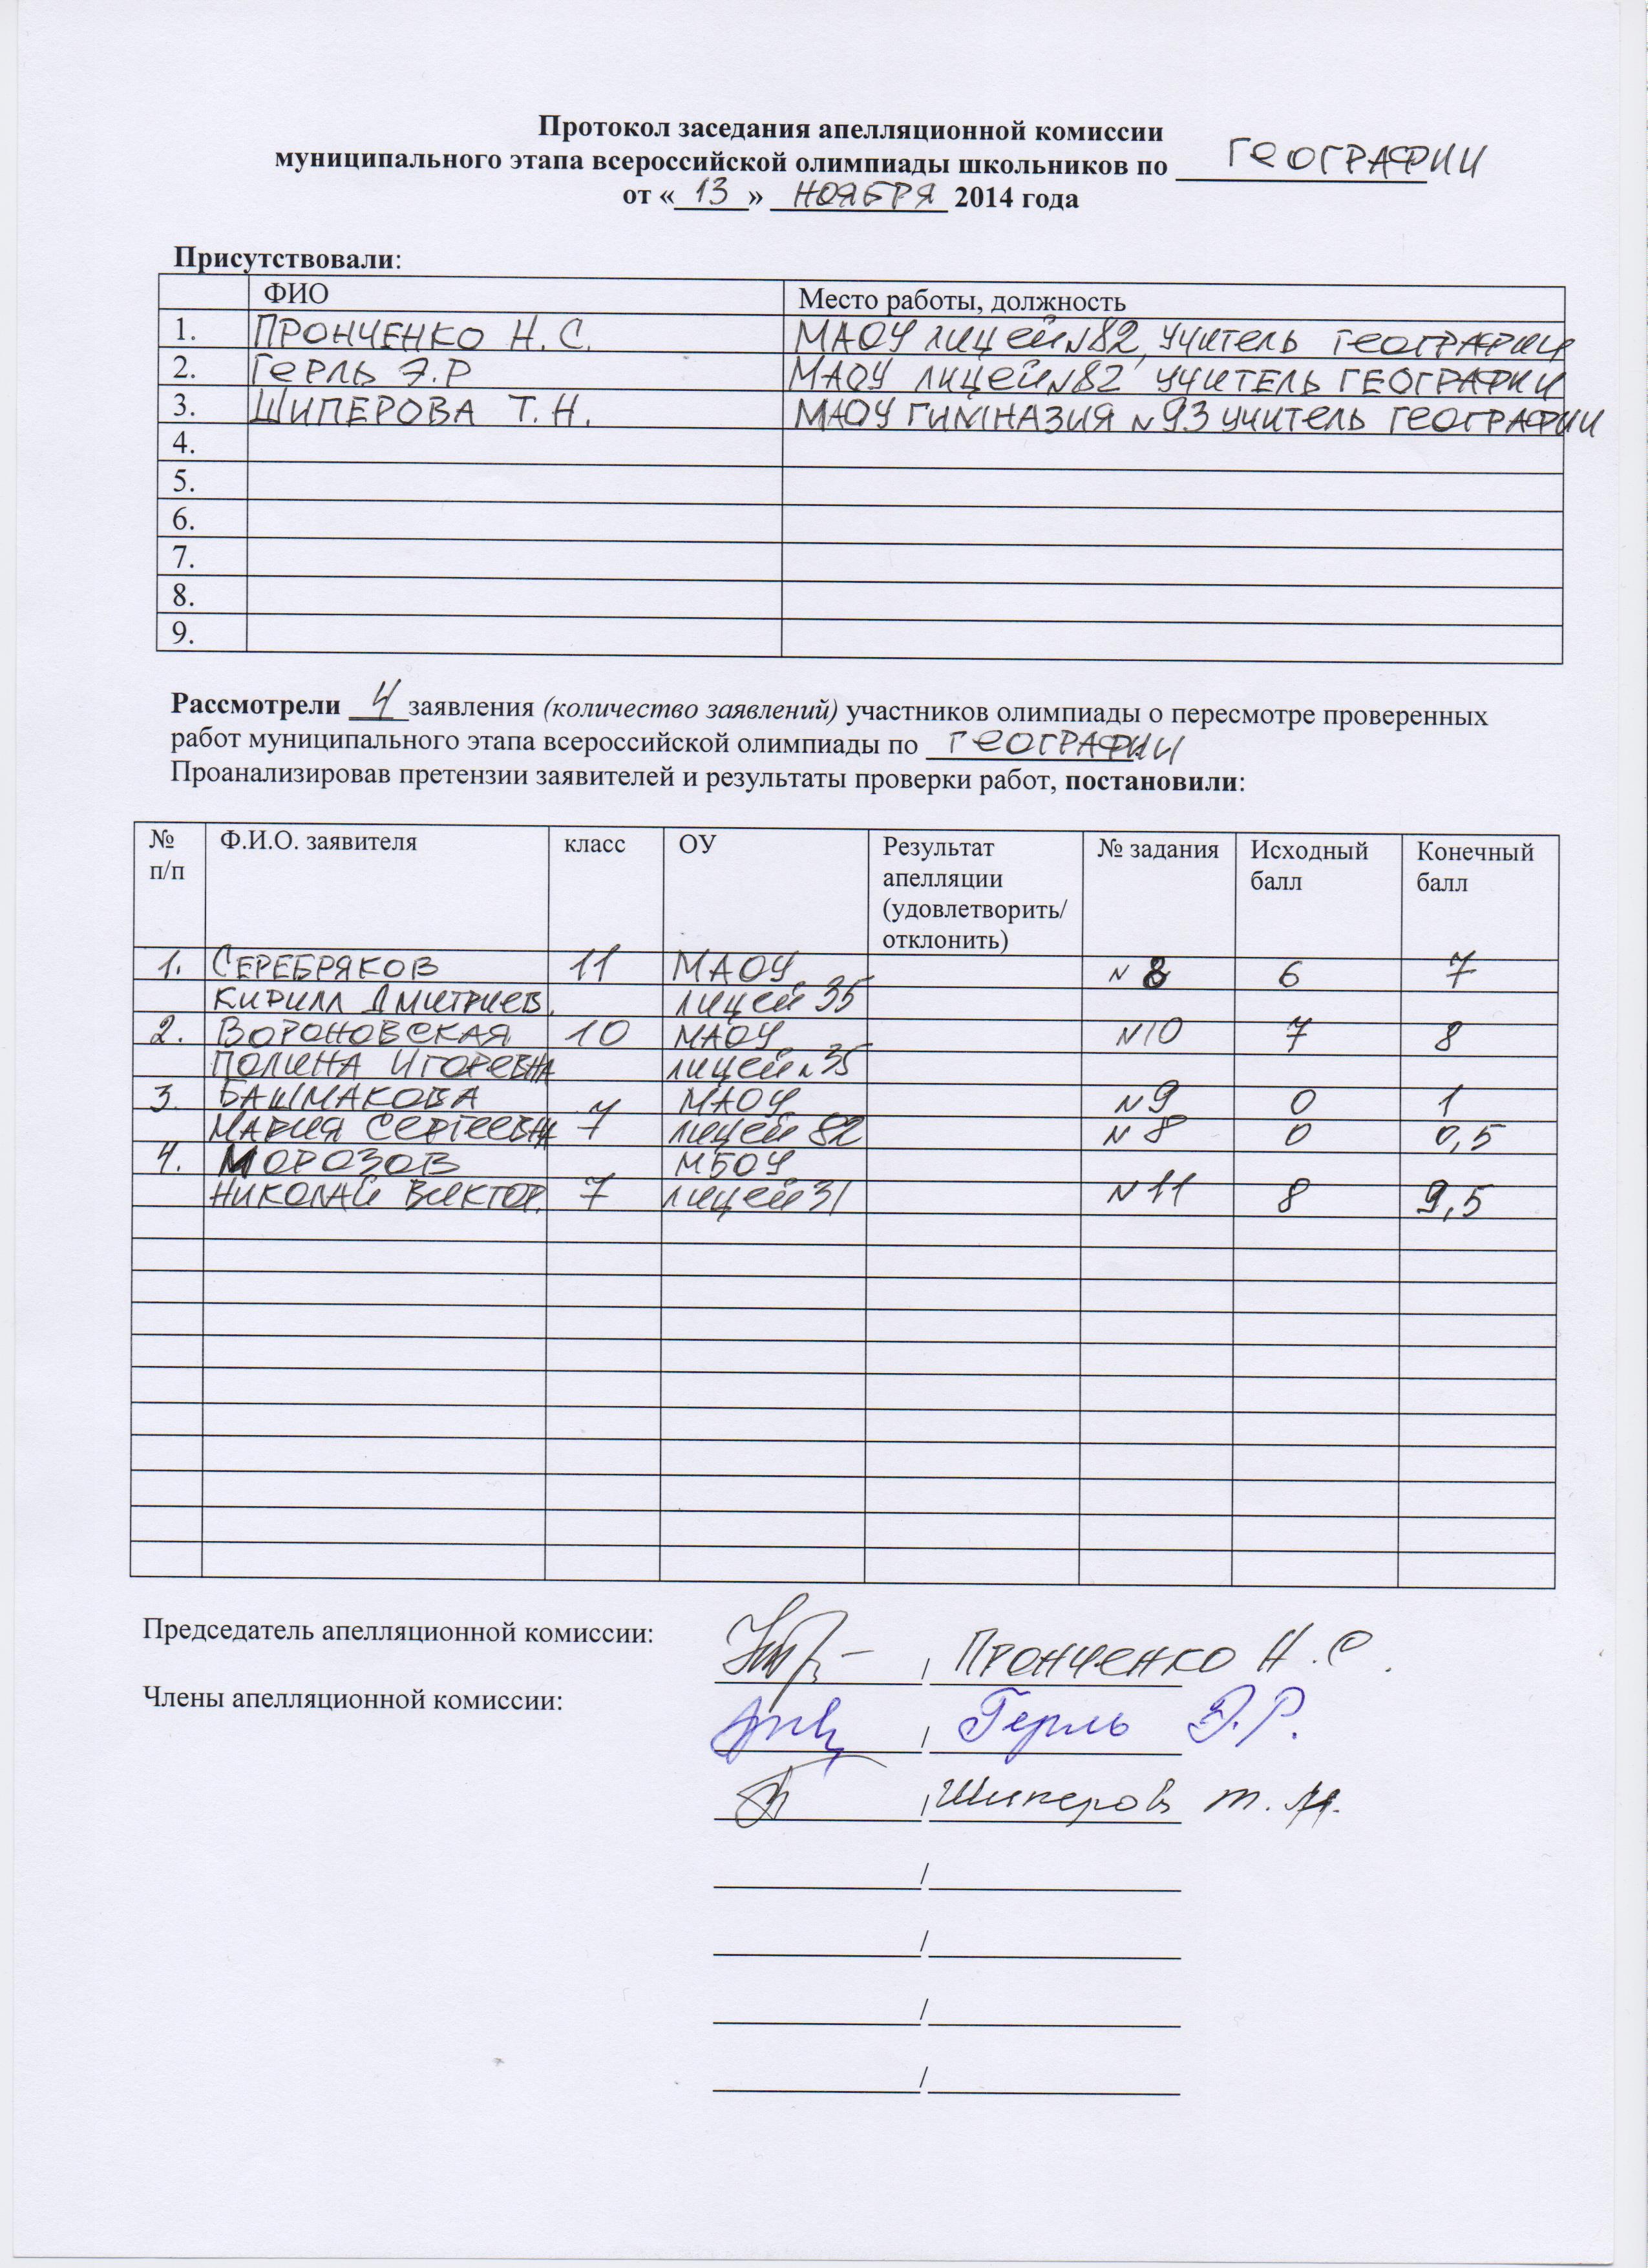 Протокол заседания апелляционной комиссии
муниципального этапа всероссийской олимпиады школьников по ГЕОГРАФИИ
от «13» НОЯБРЯ 2014 года
Присутствовали:
ФИО Место работы, должность
1. ПРОНЧЕНКО Н.С. МАОУ лицей №82, учитель географии
2. Герль Э.Р МАОУ лицей №82 учитель географии
3. ШИПЕРОВА Т.Н. МАОУ гимназия №93 учитель географии
4.
5.
6.
7.
8.
9.
Рассмотрели 4 заявления (количество заявлений) участников олимпиады о пересмотре проверенных
работ муниципального этапа всероссийской олимпиады по ГЕОГРАФИИ
Проанализировав претензии заявителей и результаты проверки работ, постановили:
№ Ф.И.О. заявителя класс ОУ Результат № задания Исходный Конечный
п/п апелляции балл балл
(удовлетворить/
отклонить)
1. СЕРЕБРЯКОВ 11 МАОУ №8 6 7
КИРИЛЛ ДМИТРИЕВ. лицей 35
2. ВОРОНОВСКАЯ 10 МАОУ №10 7 8
ПОЛИНА ИГОРЕВНА лицей №35
3. БАШМАКОВА МАОУ №9 0 1
МАРИЯ СЕРГЕЕВНА 7 лицей 82 №8 0 0,5
4. МОРОЗОВ МБОУ
НИКОЛАЙ ВИКТОР. 7 лицей 31 №11 8 9,5
Председатель апелляционной комиссии: / Пронченко Н.С.
Члены апелляционной комиссии: / Герль Э.Р.
/ Шиперова Т.Н.
/
/
/
/